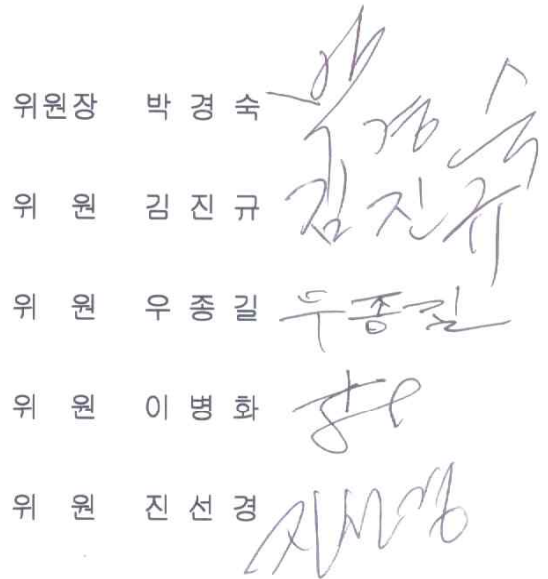 위원장 박경숙 박경숙
위 원 김진규 김진규
위 원 우종길 우종길
위 원 이병화
위 원 진선경 진선경